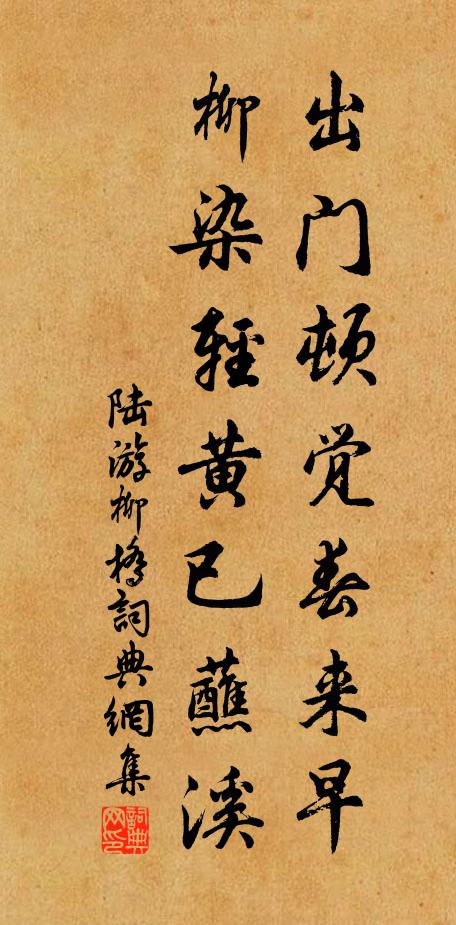 出门顿觉春来早
柳染轻黄已蘸溪
陆游柳桥詞典網集
詞典网印